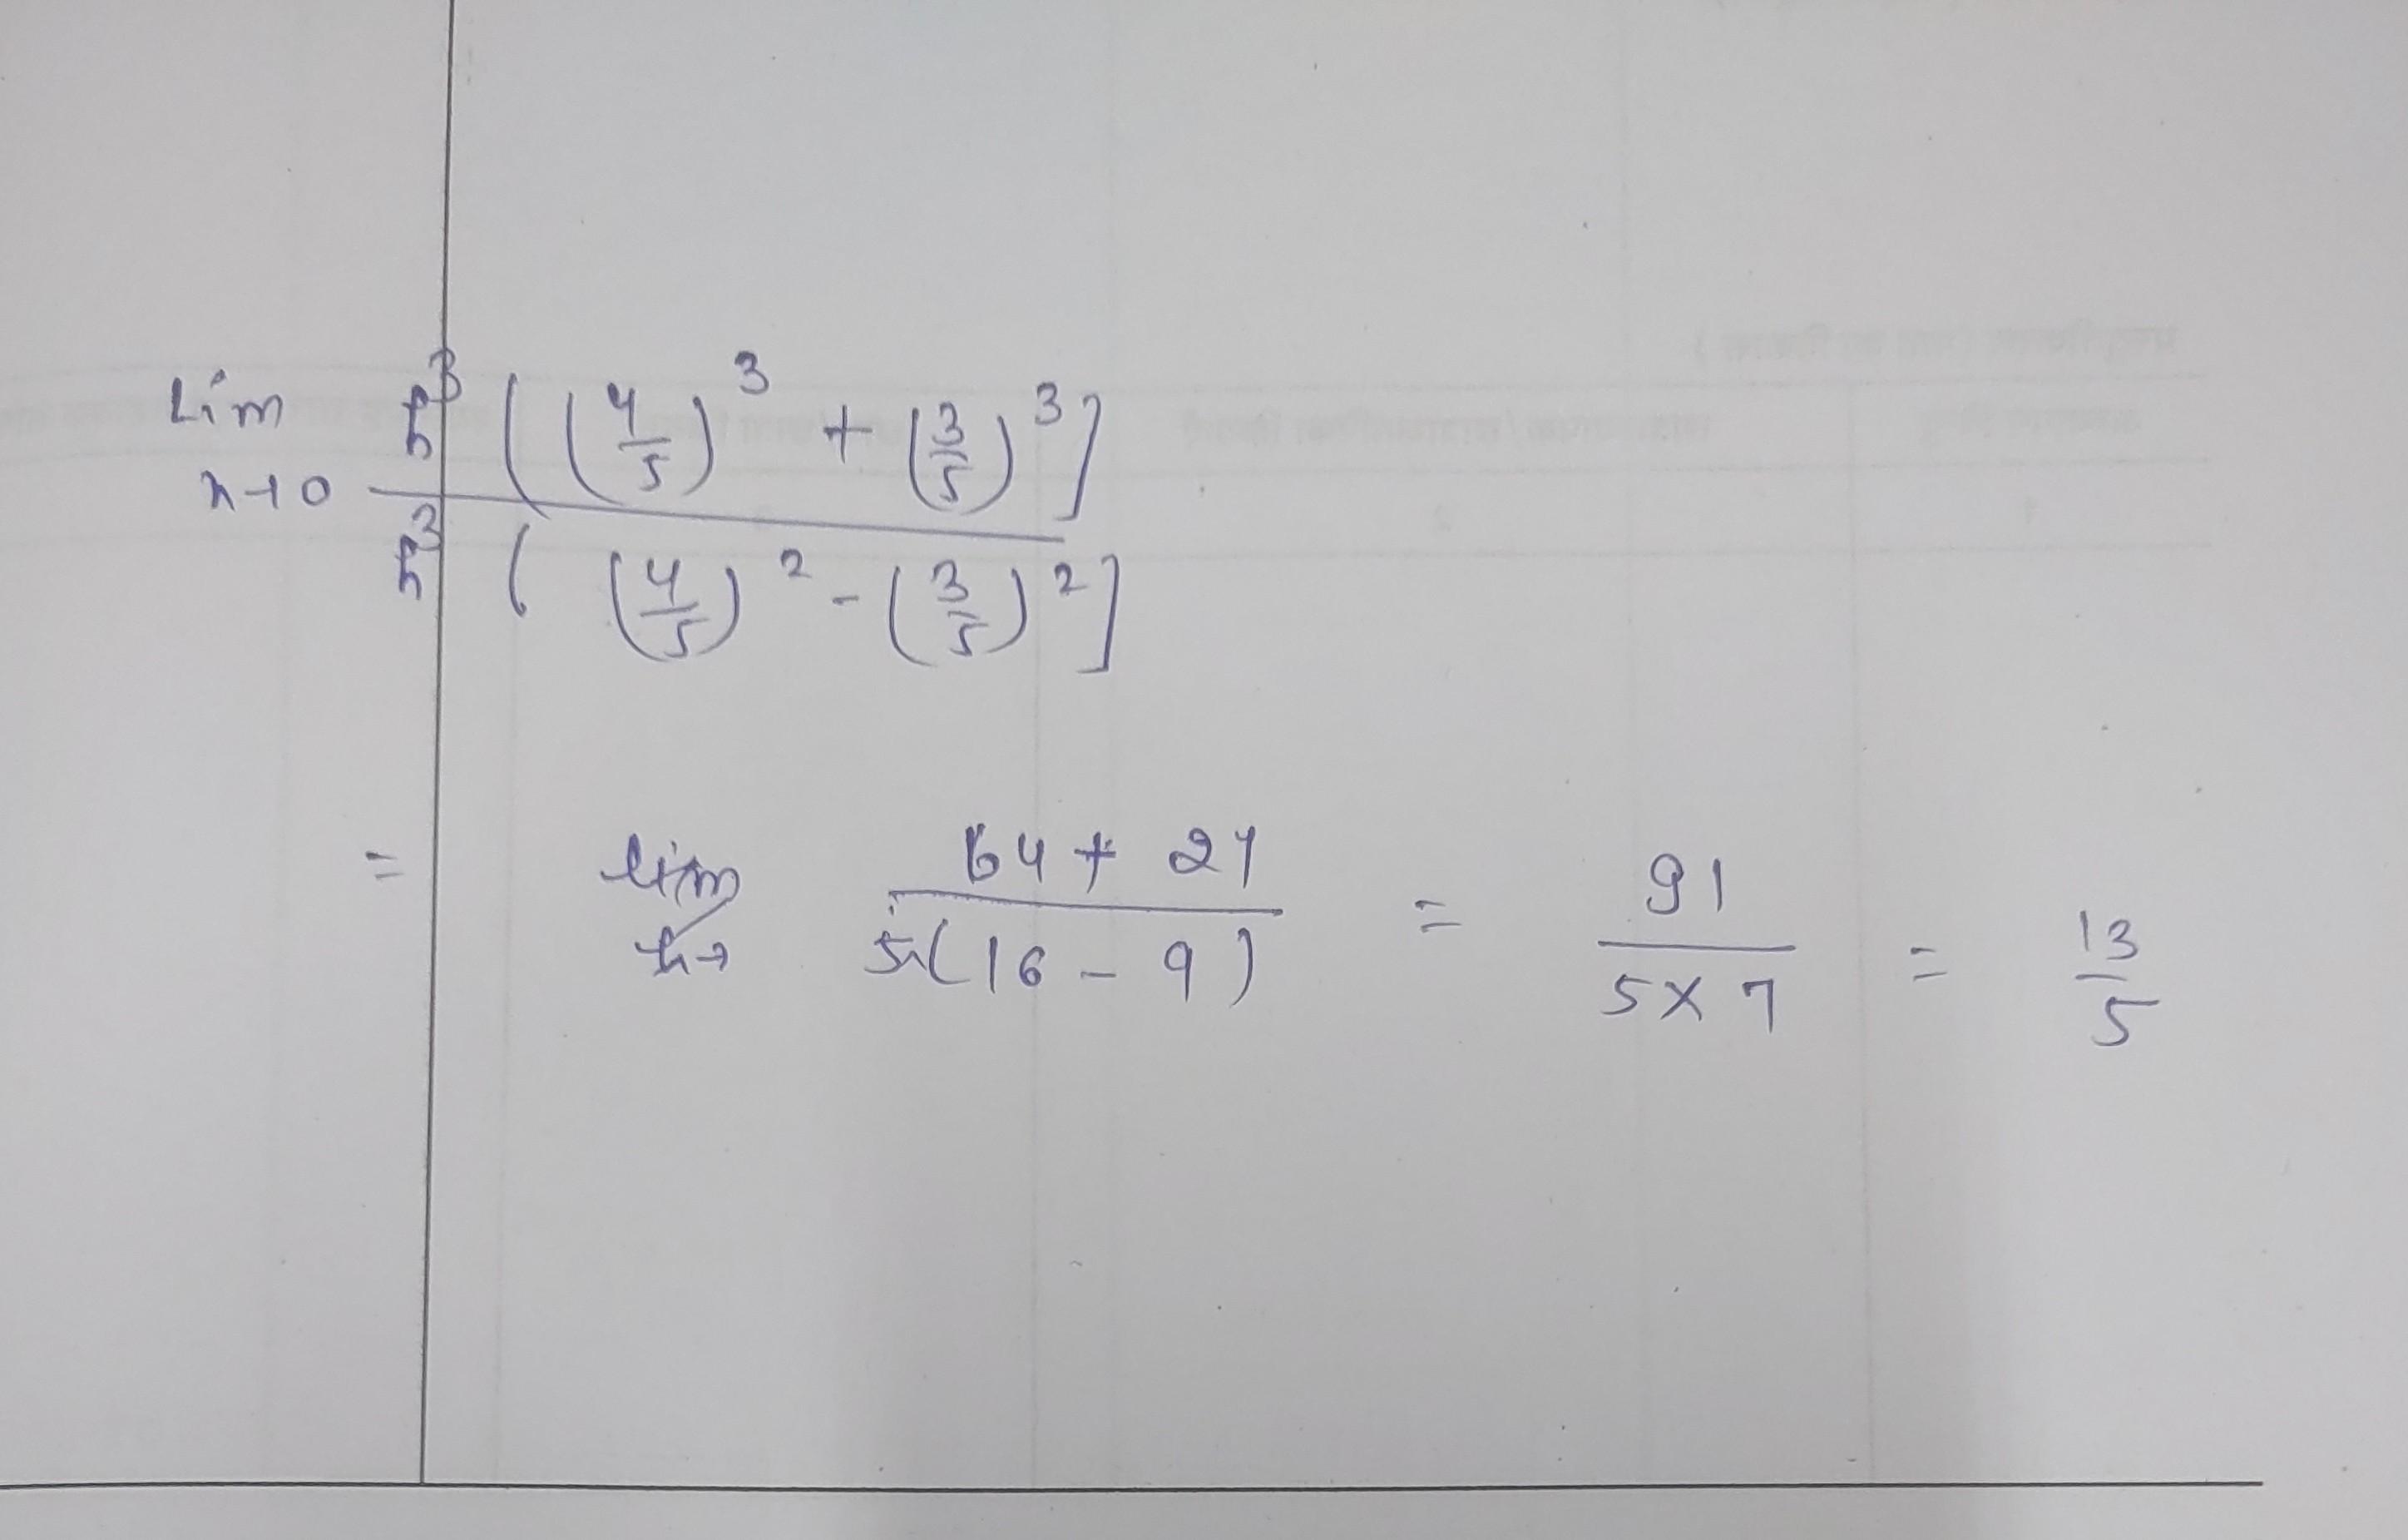 Lim h³ [ (4/5)³ + (3/5)³ ]
h→0 h³ [ (4/5)² - (3/5)² ]
= lim 64 + 27 / 5(16 - 9) = 91 / 5 x 7 = 13/5
h→